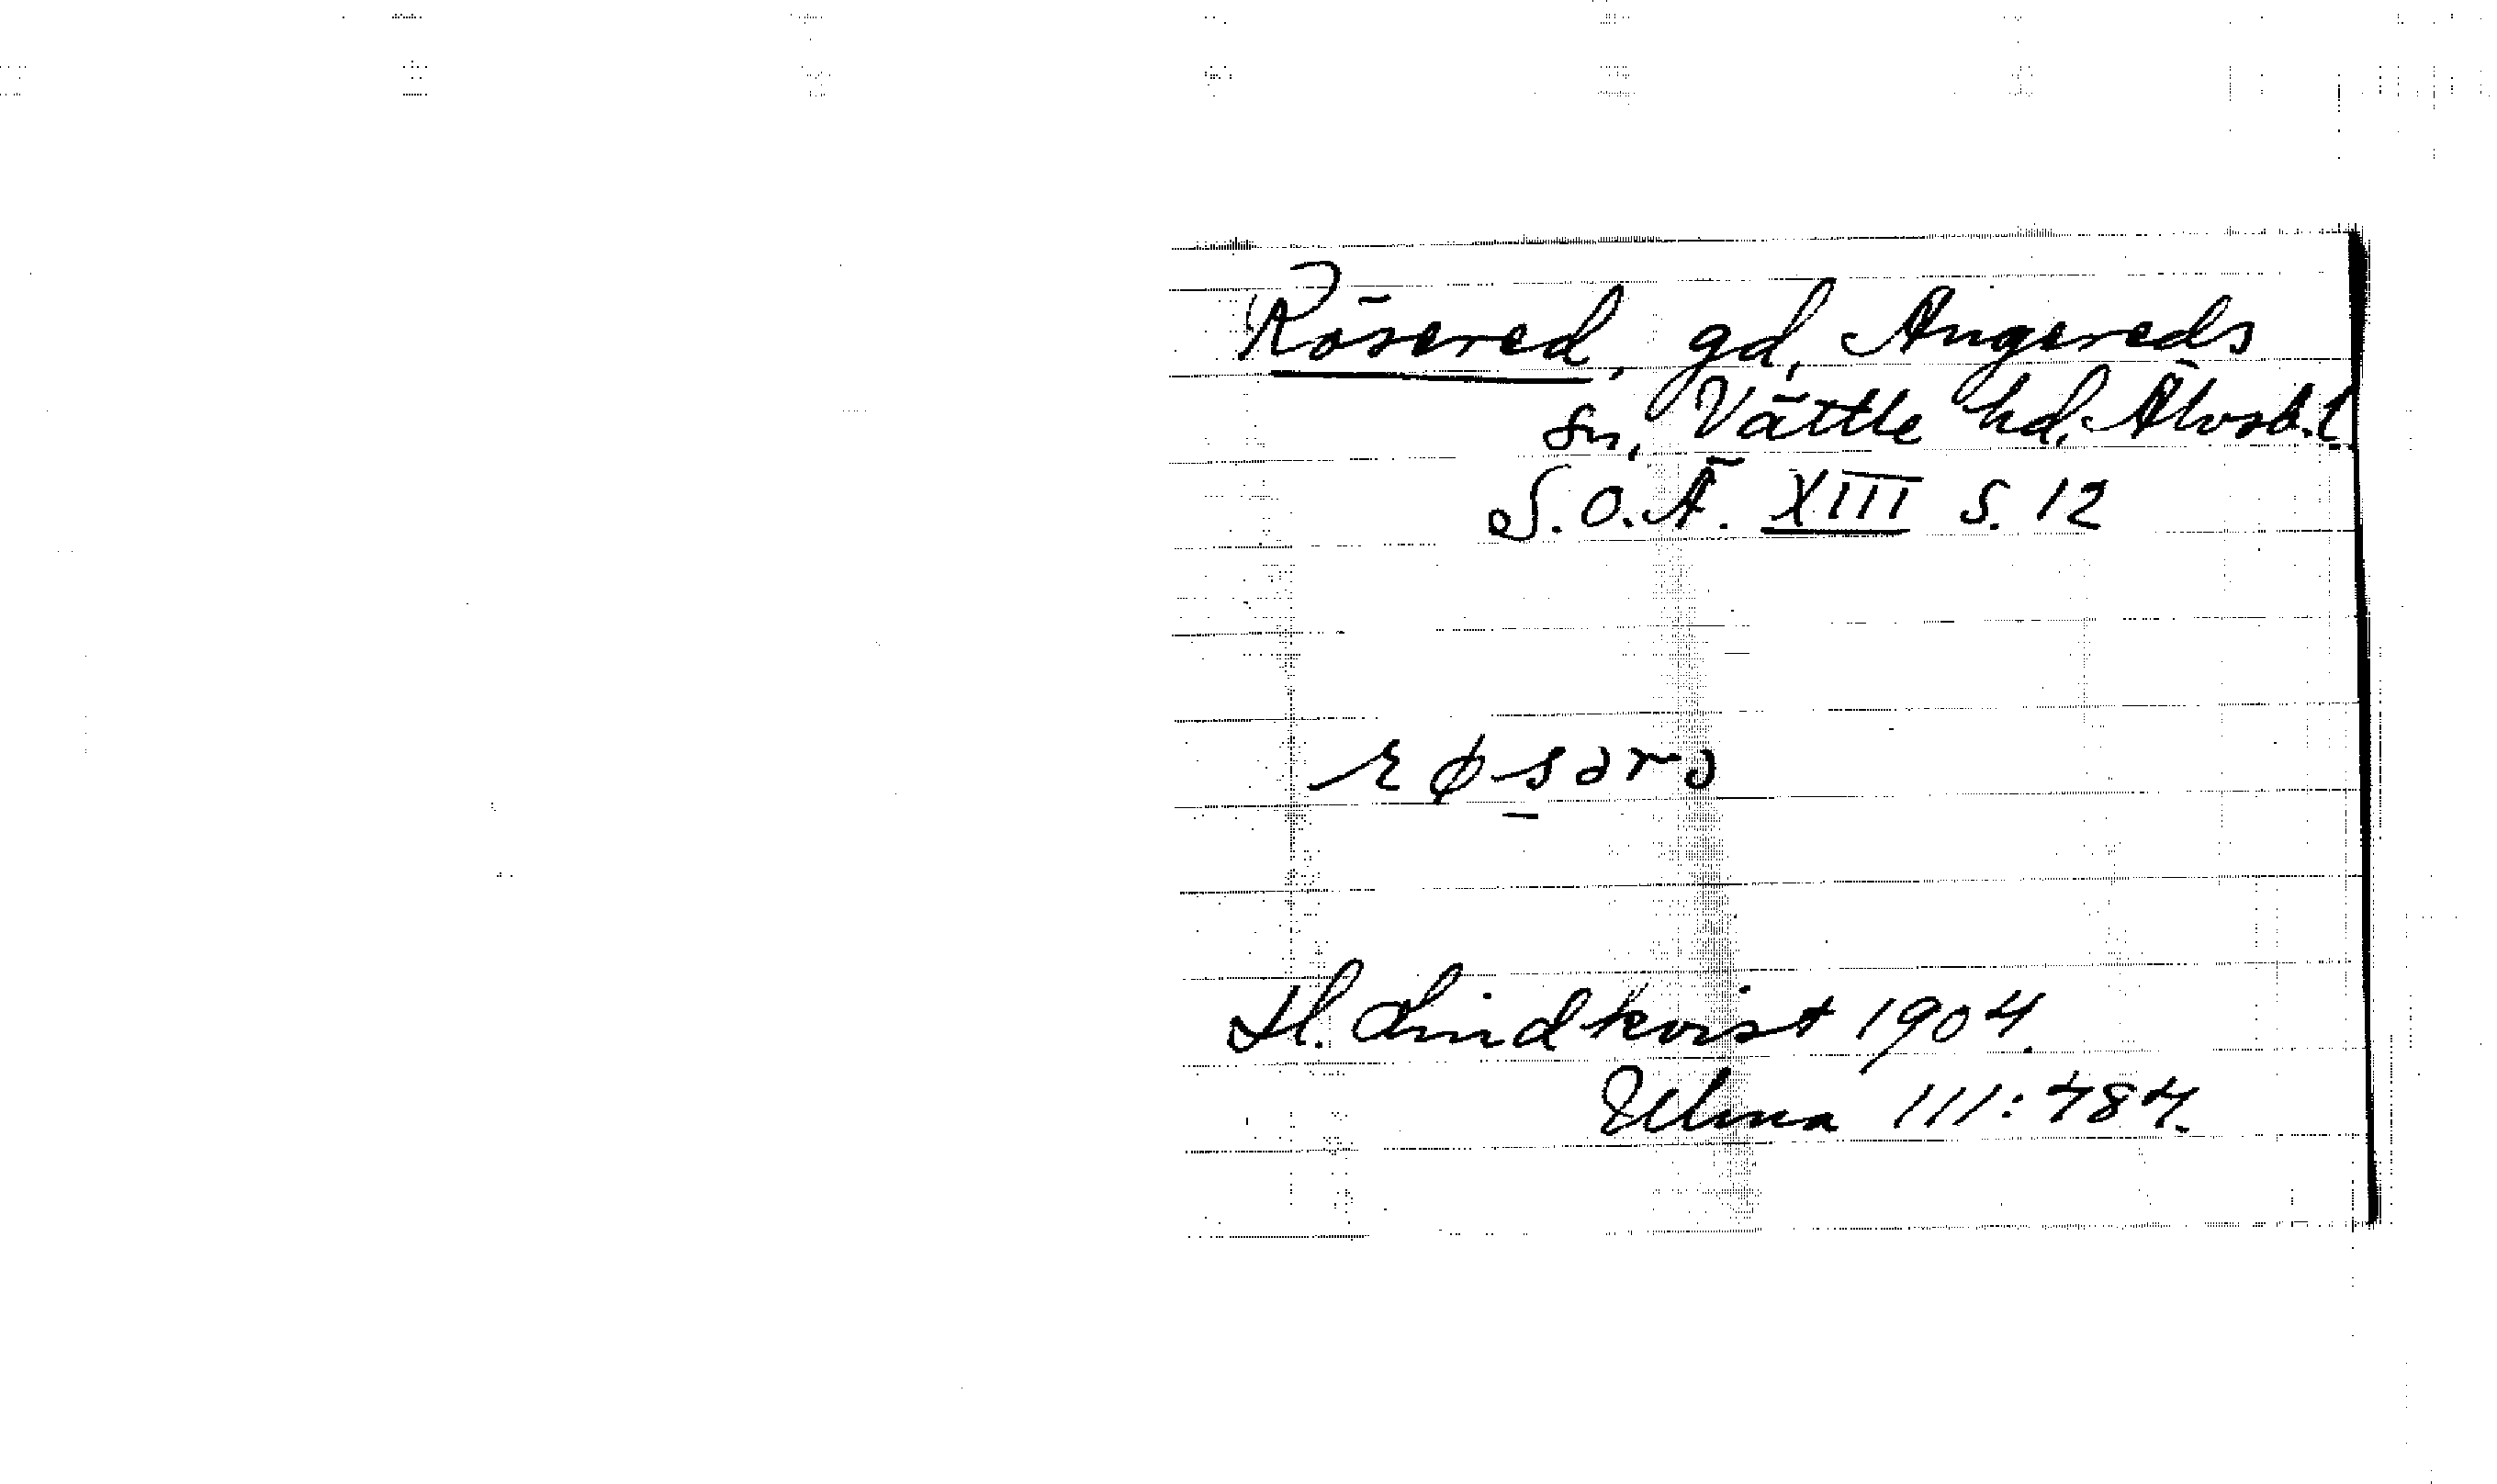 Rösered, gd, Angereds
sn, Vättle hd, Älvsb. l.
S.O.Ä. XIII s. 12
H. Lindkvist 1904.
Ulma 111:484.